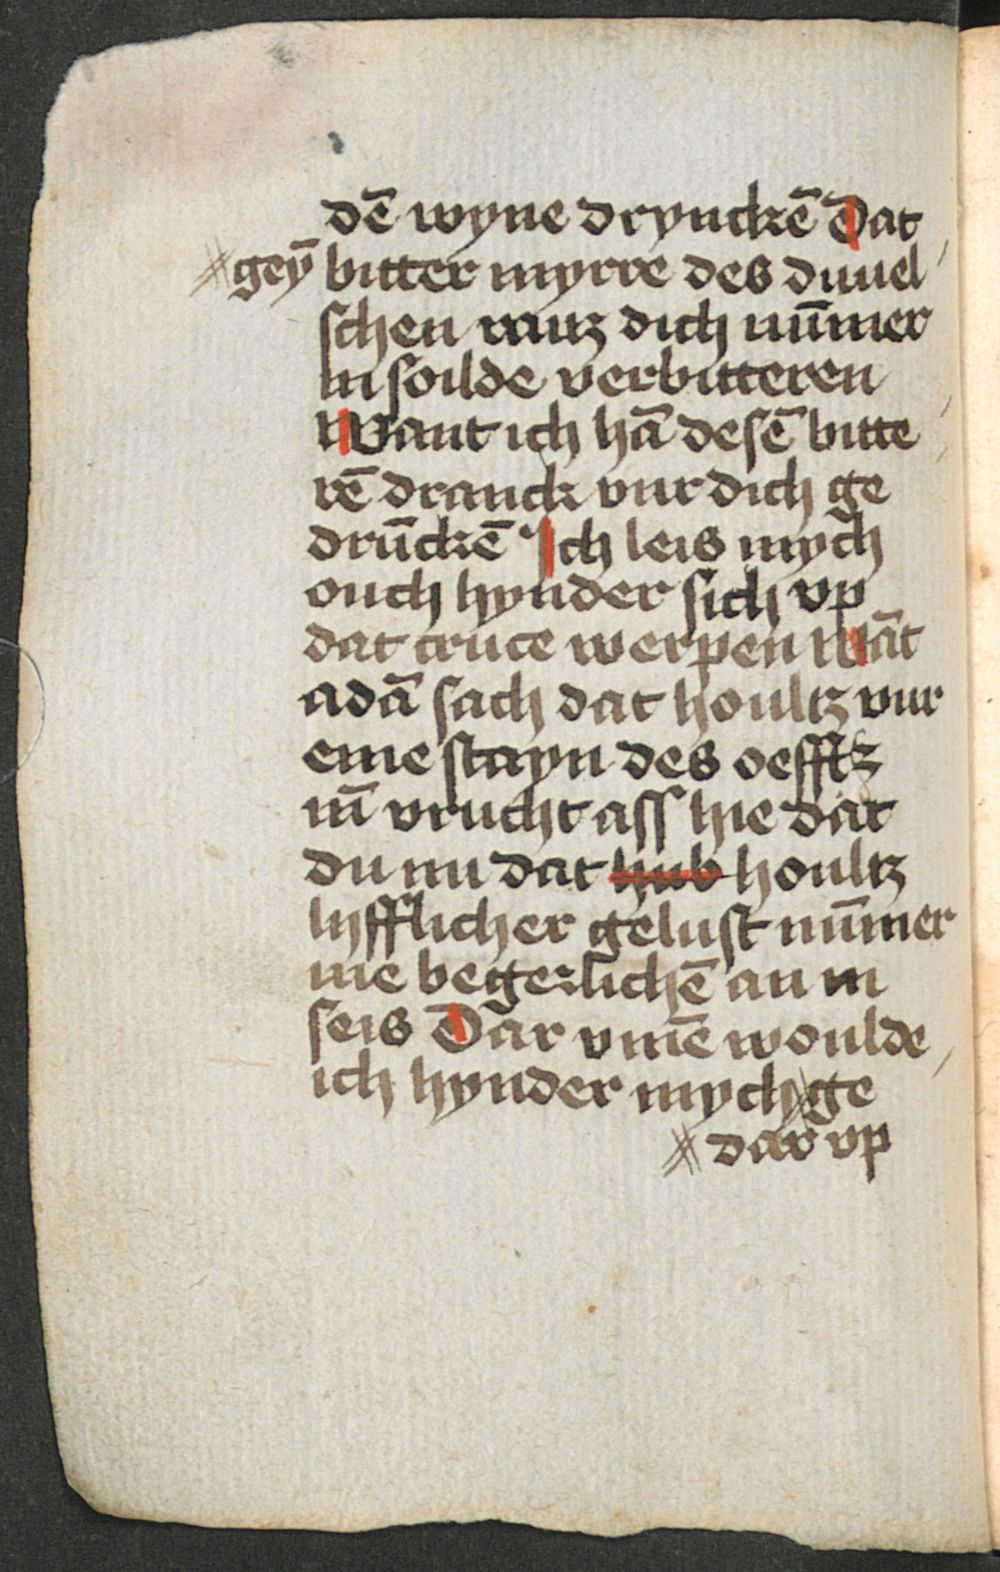 dē wyne dryncke̅ Dat
gey̅ bitter myrre des duuel
schen raitz dich nūmer
in soilde verbitteren
Want ich hā desē bitte
rē dranck vur dich ge
drūckē Ich leis mych
ouch hynder sich vp
dat cruce werpen wāt
adā sach dat houltz vur
eme stayn des oefftz
in̄ vrucht ass hie dat
du nu dat hub houltz
lyfflicher gelust nūmer
me begerlichē an in
seis Dar vmē woulde
ich hynder mych ge
dar vp